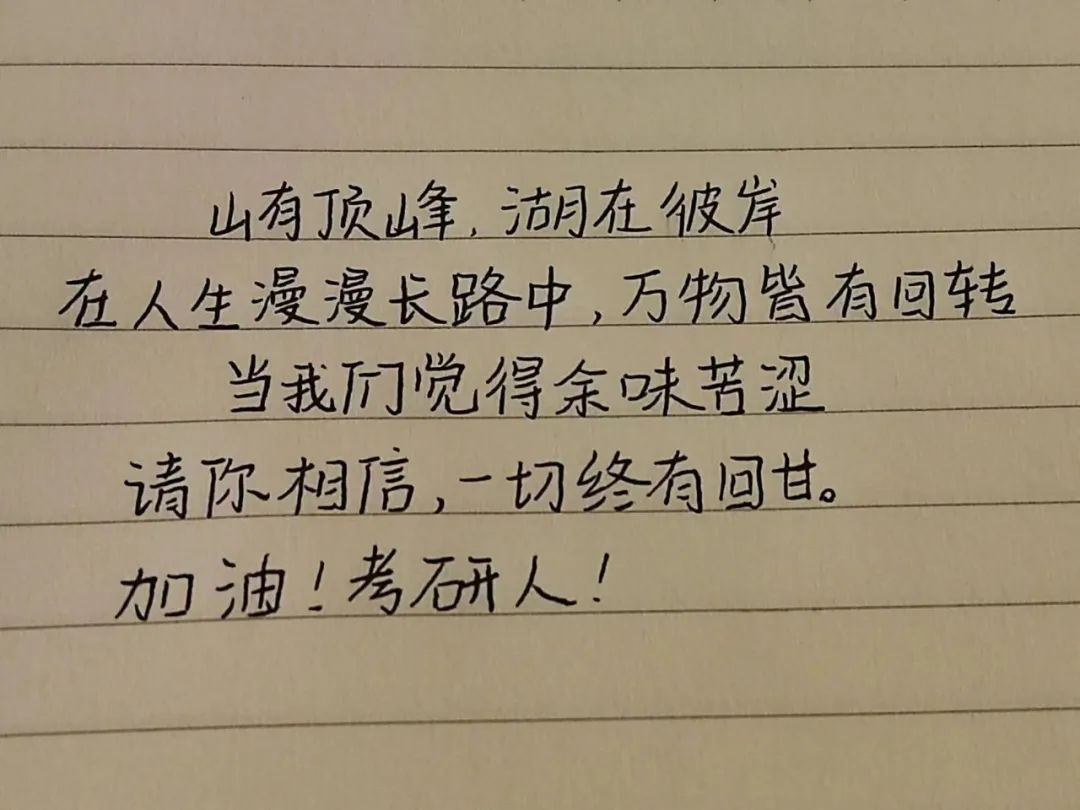 山有顶峰，湖在彼岸
在人生漫漫长路中，万物皆有回转
当我们觉得余味苦涩
请你相信，一切终有回甘。
加油！考研人！